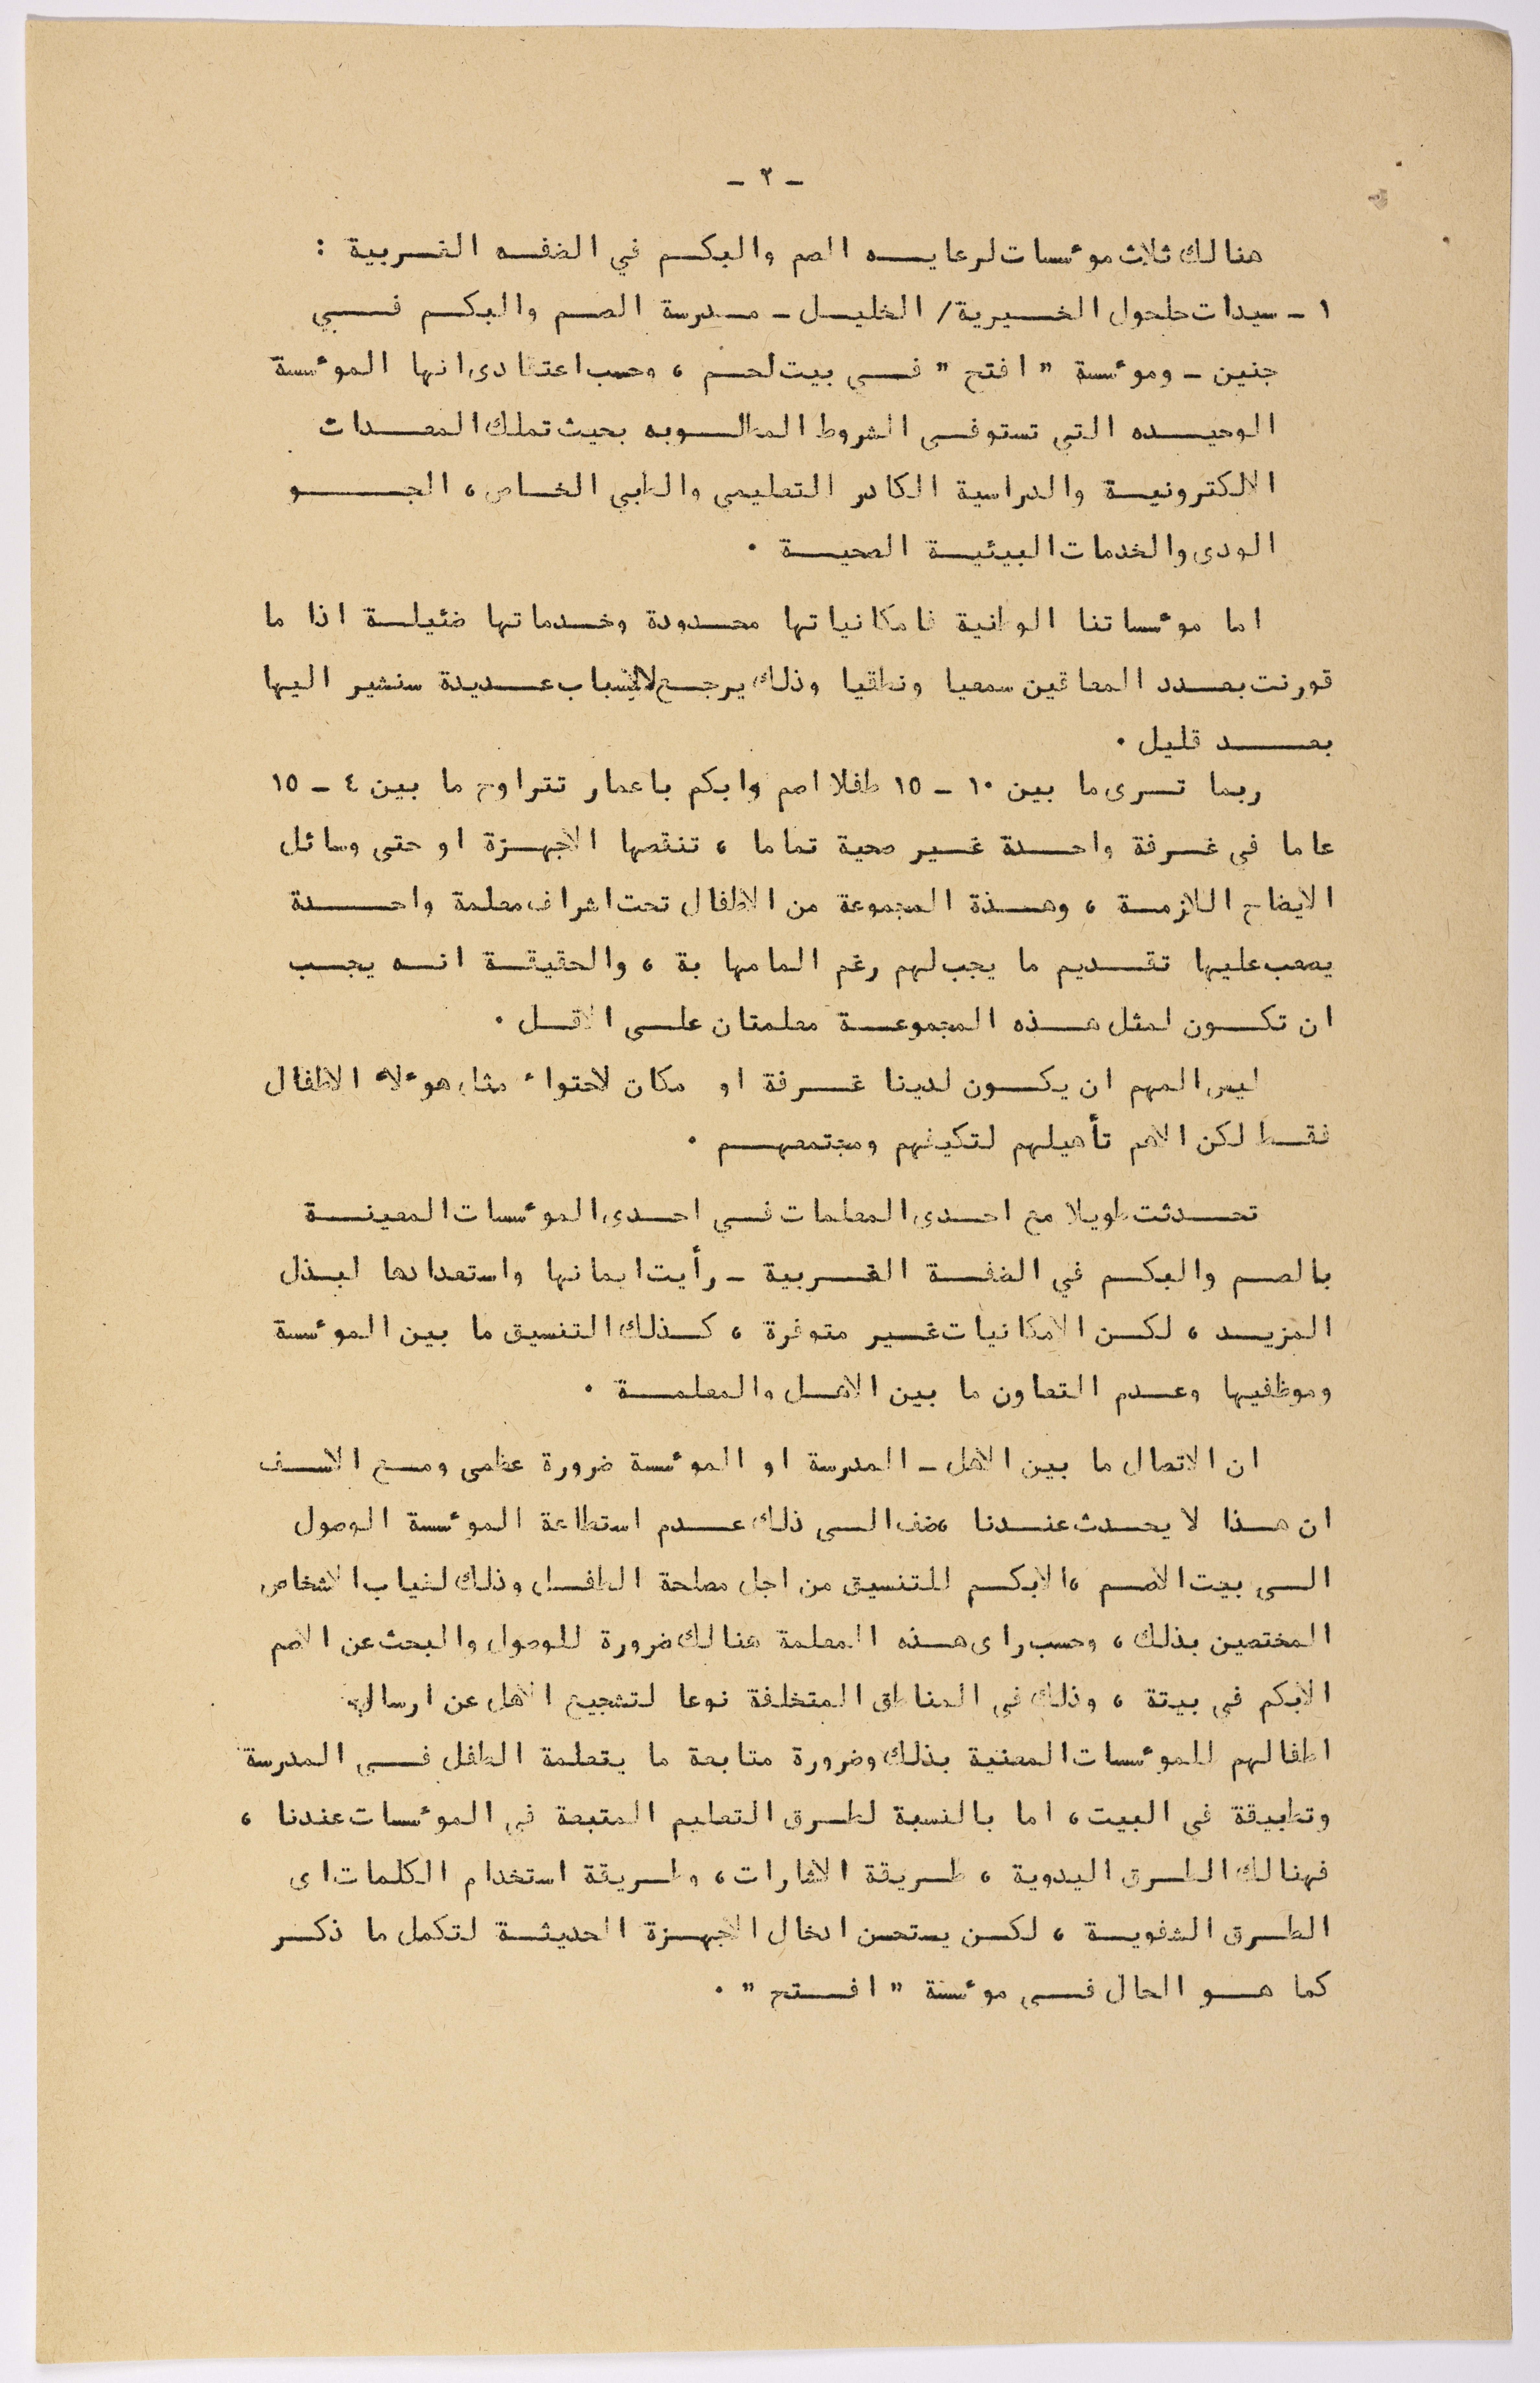 - ٢ -
هنالك ثلاث مؤسسات لرعايه الصم والبكم في الضفه الغربية :
١ - سيدات حلحول الخيرية / الخليل - مدرسة الصم والبكم في
جنين - ومؤسسة " افتح " في بيت لحم ، وحسب اعتقادى انها المؤسسة
الوحيده التي تستوفى الشروط المطلوبه بحيث تملك المعدات
الالكترونية والدراسية الكادر التعليمي والطبي الخاص ، الجو
الودى والخدمات البيئية الصحية .
اما مؤسساتنا الوطنية فامكانياتها محدودة وخدماتها ضئيلة اذا ما
قورنت بعدد المعاقين سمعيا ونطقيا وذلك يرجع لاسباب عديدة سنشير اليها
بعد قليل .
ربما ترى ما بين ١٠ - ١٥ طفلا اصم وابكم باعمار تتراوح ما بين ٤ - ١٥
عاما في غرفة واحدة غير صحية تماما ، تنقصها الاجهزة او حتى وسائل
الايضاح اللازمة ، وهذة المجموعة من الاطفال تحت اشراف معلمة واحدة
يصعب عليها تقديم ما يجب لهم رغم المامها بة ، والحقيقة انه يجب
ان تكون لمثل هذه المجموعة معلمتان على الاقل .
ليس المهم ان يكون لدينا غرفة او مكان لاحتواء مثل هؤلاء الاطفال
فقط لكن الاهم تأهيلهم لتكيفهم ومجتمعهم .
تحدثت طويلا مع احدى المعلمات في احدى المؤسسات المعينة
بالصم والبكم في الضفة الغربية - رأيت ايمانها واستعدادها لبذل
المزيد ، لكن الامكانيات غير متوفرة ، كذلك التنسيق ما بين المؤسسة
وموظفيها وعدم التعاون ما بين الاهل والمعلمة .
ان الاتصال ما بين الاهل - المدرسة او المؤسسة ضرورة عظمى ومع الاسف
ان هذا لا يحدث عندنا ،ضف الى ذلك عدم استطاعة المؤسسة الوصول
الى بيت الاصم ،الابكم للتنسيق من اجل مصلحة الطفل وذلك لغياب الاشخاص
المختصين بذلك ، وحسب راى هذه المعلمة هنالك ضرورة للوصول والبحث عن الاصم
الابكم في بيتة ، وذلك في المناطق المتخلفة نوعا لتشجيع الاهل عن ارسال
اطفالهم للمؤسسات المعنية بذلك وضرورة متابعة ما يتعلمة الطفل في المدرسة
وتطبيقة في البيت ، اما بالنسبة لطرق التعليم المتبعة في المؤسسات عندنا ،
فهنالك الطرق اليدوية ، طريقة الاشارات ، وطريقة استخدام الكلمات اى
الطرق الشفوية ، لكن يستحسن ادخال الاجهزة الحديثة لتكمل ما ذكر
كما هو الحال في مؤسسة " افتح " .